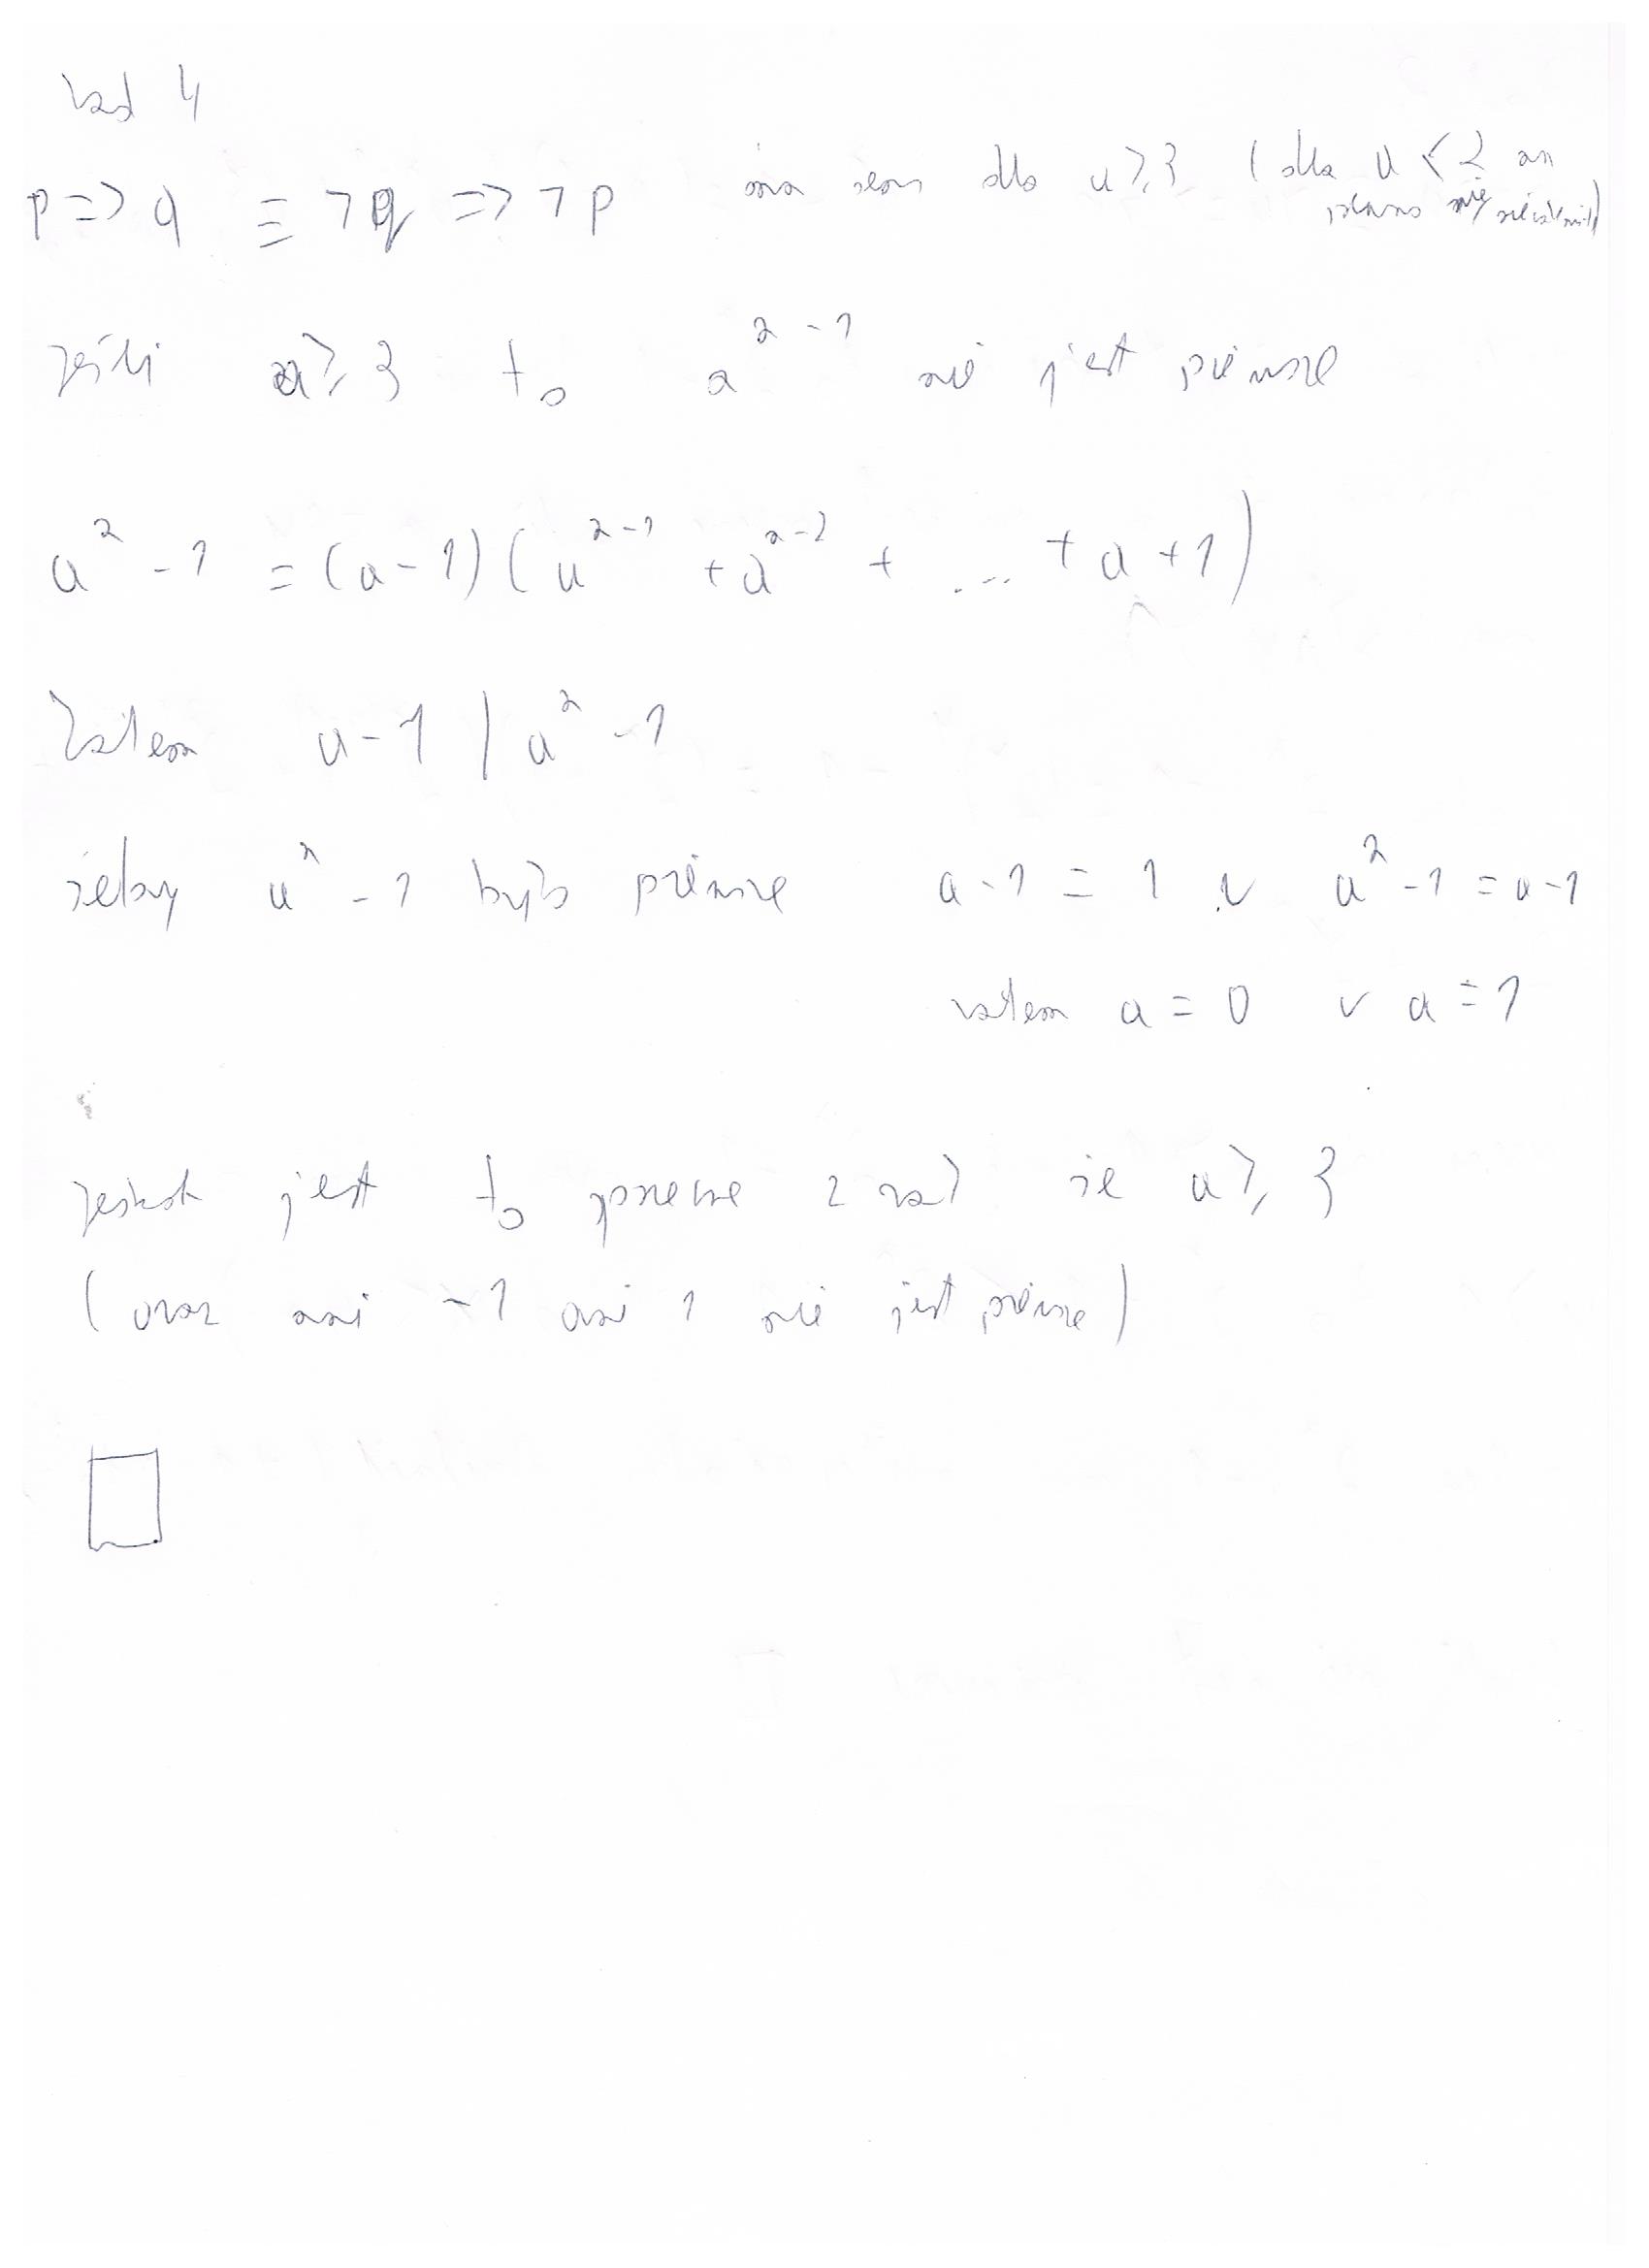 Zad 4
p => q ≡ ¬q => ¬p dla a ≥ 3 (dla a < 2
Jeśli a ≥ 3 to a^n - 1 nie jest pierwsze
a^n - 1 = (a-1)(a^{n-1} + a^{n-2} + ... + a + 1)
Zatem a-1 | a^n - 1
żeby a^n - 1 było pierwsze a-1 = 1 ∨ a^n - 1 = a-1
zatem a = 0 ∨ a = 1
jednak jest to sprzeczne z zał że a ≥ 3
(oraz ani -1 ani 1 nie jest pierwsze)
□